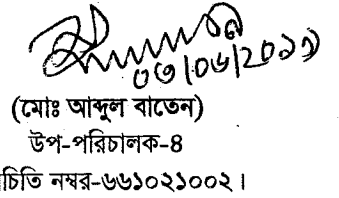 ০৩/০৬/২০১১
(মোঃ আব্দুল বাতেন)
উপ-পরিচালক-৪
চিতি নম্বর-৬৬১০২১০০২।